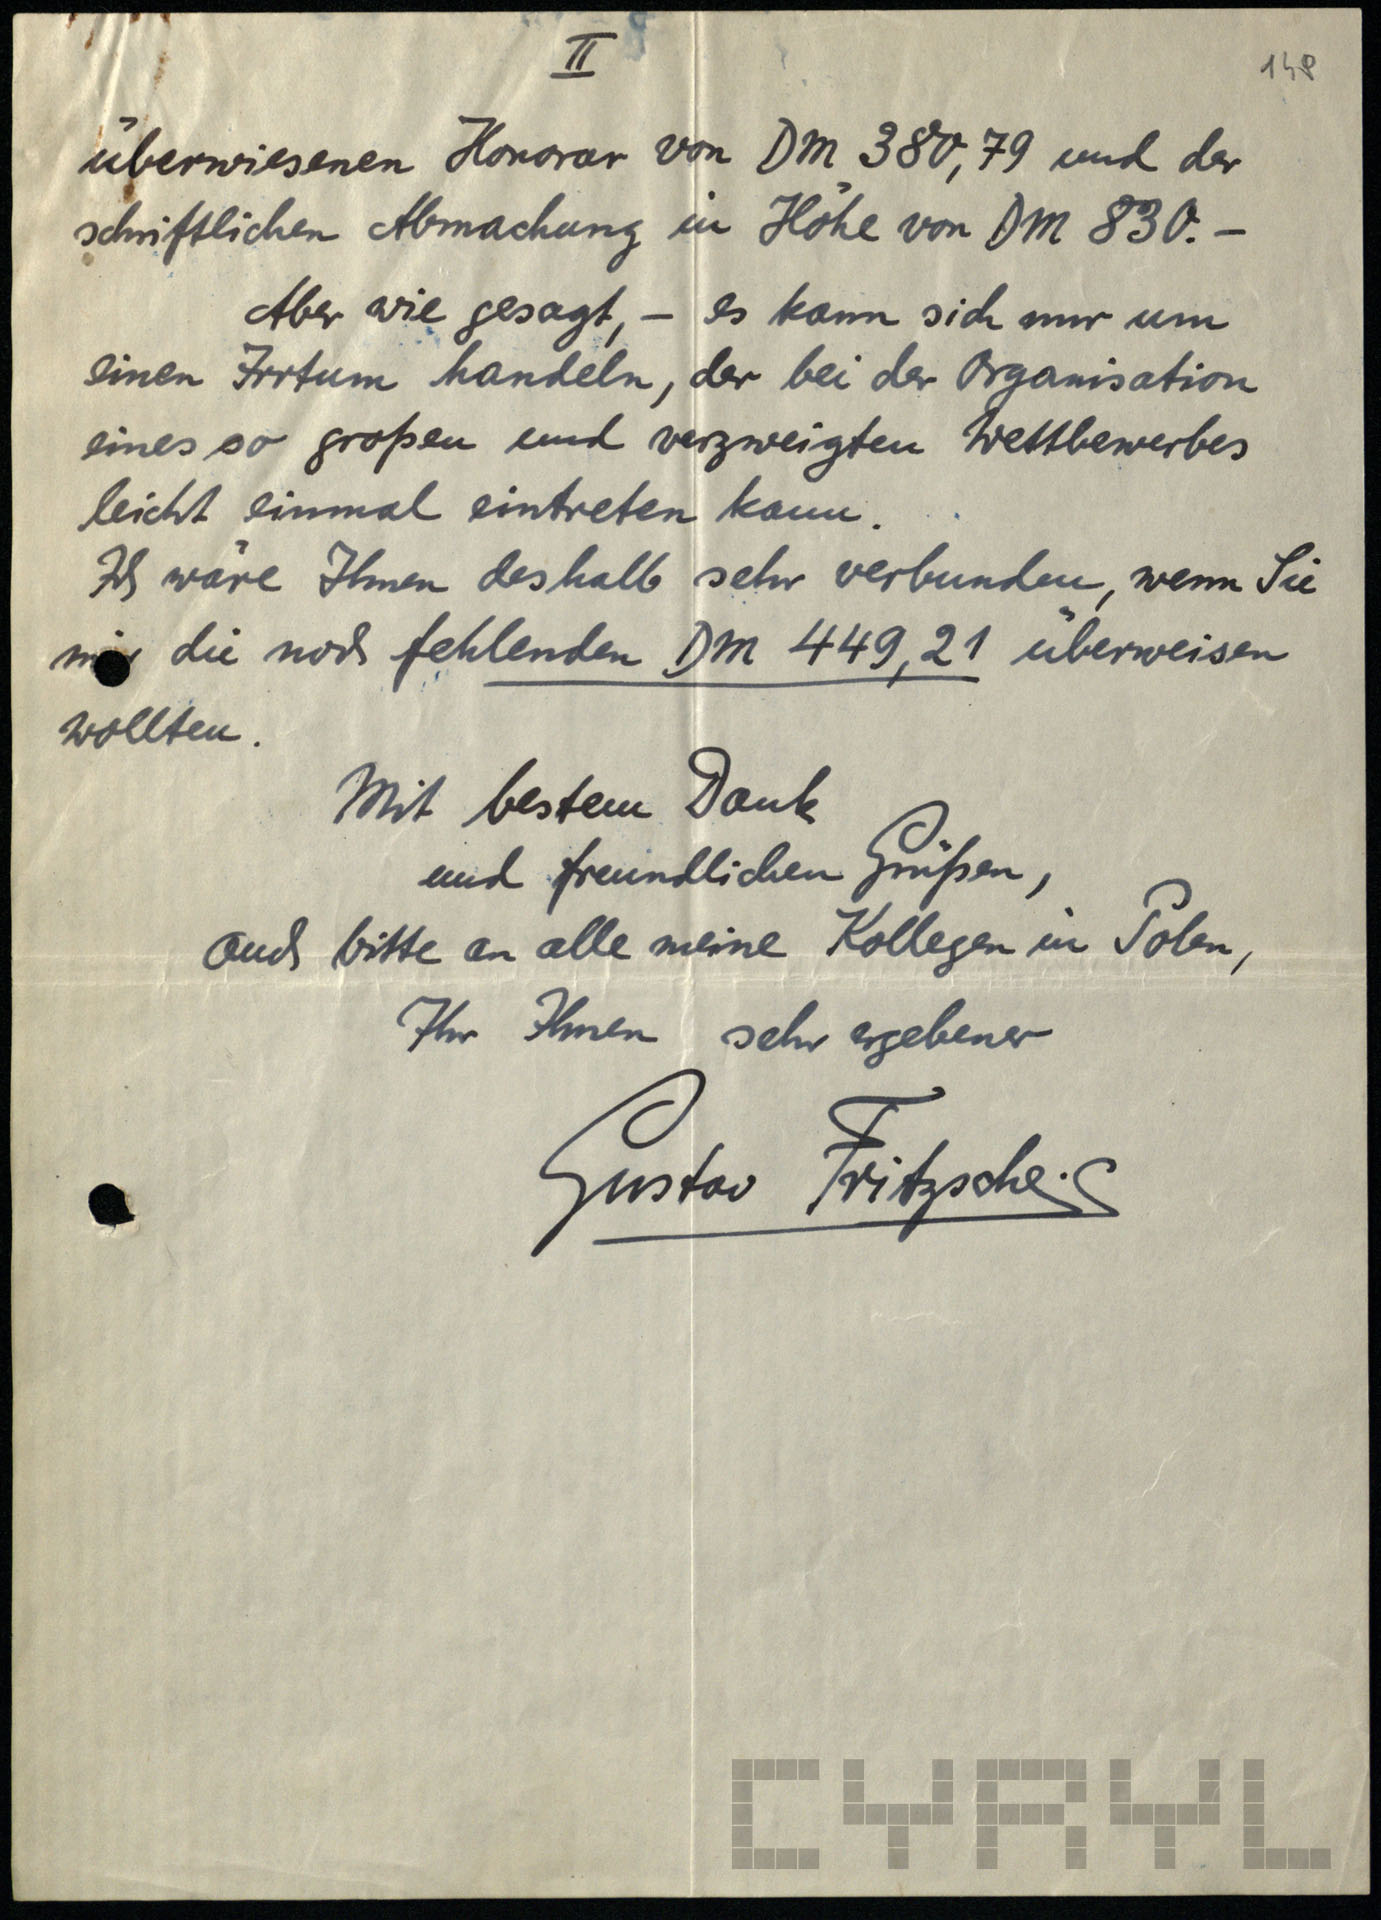 II
148
überwiesenen Honorar von DM 380,79 und der
schriftlichen Abmachung in Höhe von DM 830.–
Aber wie gesagt, – es kann sich nur um
einen Irrtum handeln, der bei der Organisation
eines so großen und verzweigten Wettbewerbes
leicht einmal eintreten kann.
Ich wäre Ihnen deshalb sehr verbunden, wenn Sie
mir die noch fehlenden DM 449,21 überweisen
wollten.
Mit bestem Dank
und freundlichen Grüßen,
auch bitte an alle meine Kollegen in Polen,
Ihr Ihnen sehr ergebener
Gustav Fritzsche.
CYRYL